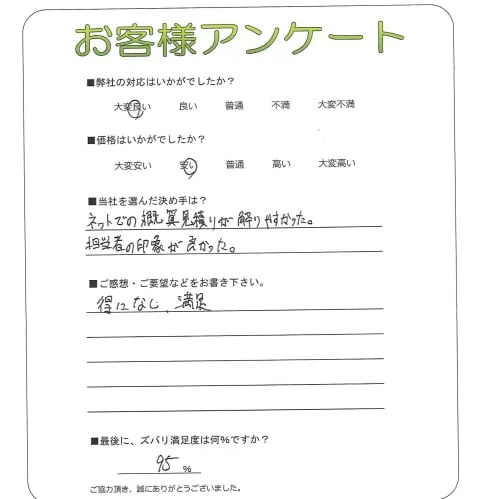 お客様アンケート
■弊社の対応はいかがでしたか？
大変良い 良い 普通 不満 大変不満
■価格はいかがでしたか？
大変安い 安い 普通 高い 大変高い
■当社を選んだ決め手は？
ネットでの概算見積りが解りやすかった。
担当者の印象が良かった。
■ご感想・ご要望などをお書き下さい。
得になし、満足
■最後に、ズバリ満足度は何%ですか？
95 %
ご協力頂き、誠にありがとうございました。